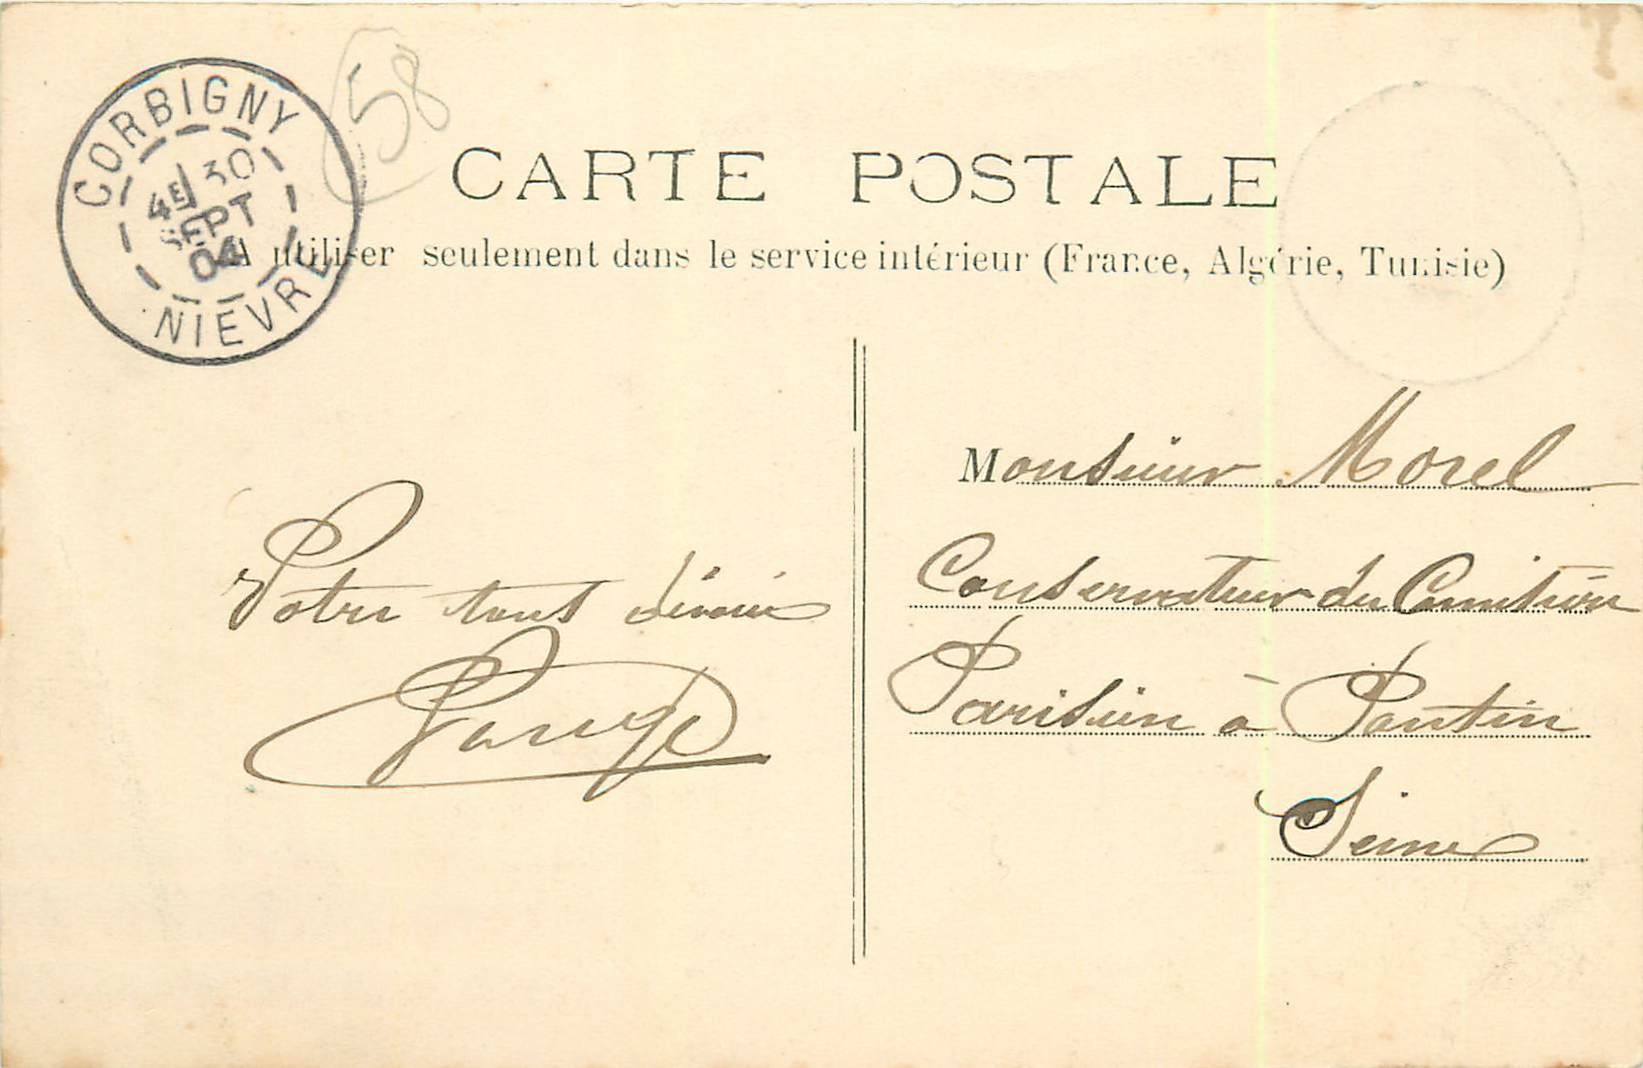 CORBIGNY
4E 30
SEPT
04
NIEVRE
58
CARTE POSTALE
A utiliser seulement dans le service intérieur (France, Algérie, Tunisie)
Monsieur Morel
Conservateur du Cimetière
Parisien à Pantin
Seine
Votre tout dévoué